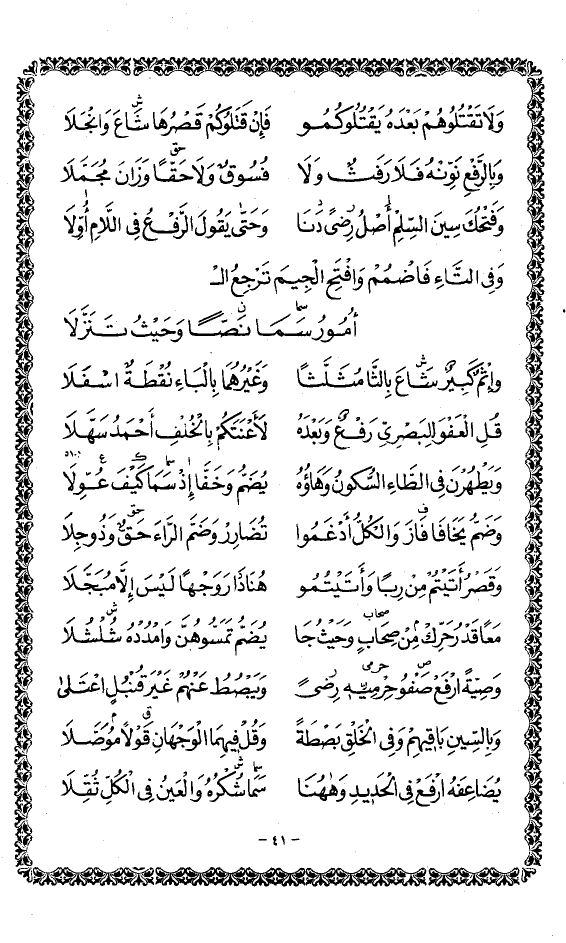 وَلَا تَقْتُلُوهُمْ بَعْدَهُ يَقْتُلُوكُمُو فَإِنْ قَتَلُوكُمْ قَصْرُهَا شَاعَ وَانْجَلَا
وَبِالرَّفْعِ نَوِّنْهُ فَلَا رَفَثٌ وَلَا فُسُوقٌ وَلَا حَقًّا وَزَانَ مُجَمَّلَا
وَفَتْحُكَ سِينَ السِّلْمِ أَصْلُ رِضًى دَنَا وَحَتَّى يَقُولَ الرَّفْعُ فِي اللَّامِ أُوِّلَا
وَفِي التَّاءِ فَاضْمُمْ وَافْتَحِ الْجِيمَ تَرْجِعُ الْـ
أُمُورُ سَمَا نَصًّا وَحَيْثُ تَنَزَّلَا
وَإِثْمٌ كَبِيرٌ شَاعَ بِالثَّا مُثَلَّثًا وَغَيْرُهُمَا بِالْبَاءِ نُقْطَةٌ اسْفَلَا
قُلِ الْعَفْوَ لِلْبَصْرِيِّ رَفْعٌ وَبَعْدَهُ لَأَعْنَتَكُمْ بِالْخُلْفِ أَحْمَدُ سَهَّلَا
وَيَطْهُرْنَ فِي الطَّاءِ السُّكُونُ وَهَاؤُهُ يُضَمُّ وَخَفَّا إِذْ سَمَا كَيْفَ عُوِّلَا
وَضَمُّ يَخَافَا فَازَ وَالْكُلُّ أَدْغَمُوا تُضَارِرْ وَضَمَّ الرَّاءَ حَقٌّ وَذُو جِلَا
وَقَصْرُ أَتَيْتُمْ مِنْ رِبًا وَأَتَيْتُمُو هُنَا دَارَ وَجْهًا لَيْسَ إِلَّا مُبَجَّلَا
مَعًا قَدْرُ حَرِّكْ مِنْ صِحَابٍ وَحَيْثُ جَا يُضَمُّ تَمَسُّوهُنَّ وَامْدُدْهُ شُلْشُلَا
وَصِيَّةً ارْفَعْ صَفْوُ حِرْمِيِّهِ رِضًى وَيَبْصُطُ عَنْهُمْ غَيْرَ قُنْبُلٍ اعْتَلَى
وَبِالسِّينِ بَاقِيهِمْ وَفِي الْخَلْقِ بَصْطَةً وَقُلْ فِيهِمَا الْوَجْهَانِ قَوْلًا مُوَصَّلَا
يُضَاعِفَهُ ارْفَعْ فِي الْحَدِيدِ وَهَهُنَا سَمَا شُكْرُهُ وَالْعَيْنُ فِي الْكُلِّ ثُقِّلَا
- ٤١ -